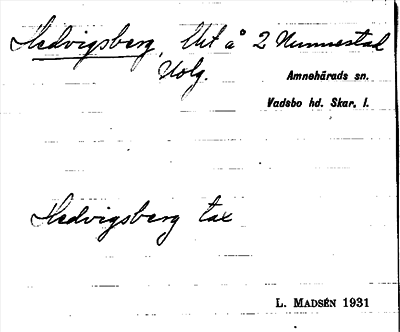 Hedvigsberg, Utj å 2 Nunnestad
Kolg.
Amnehärads sn.
Vadsbo hd. Skar. l.
Hedvigsberg tax
L. MADSÉN 1931